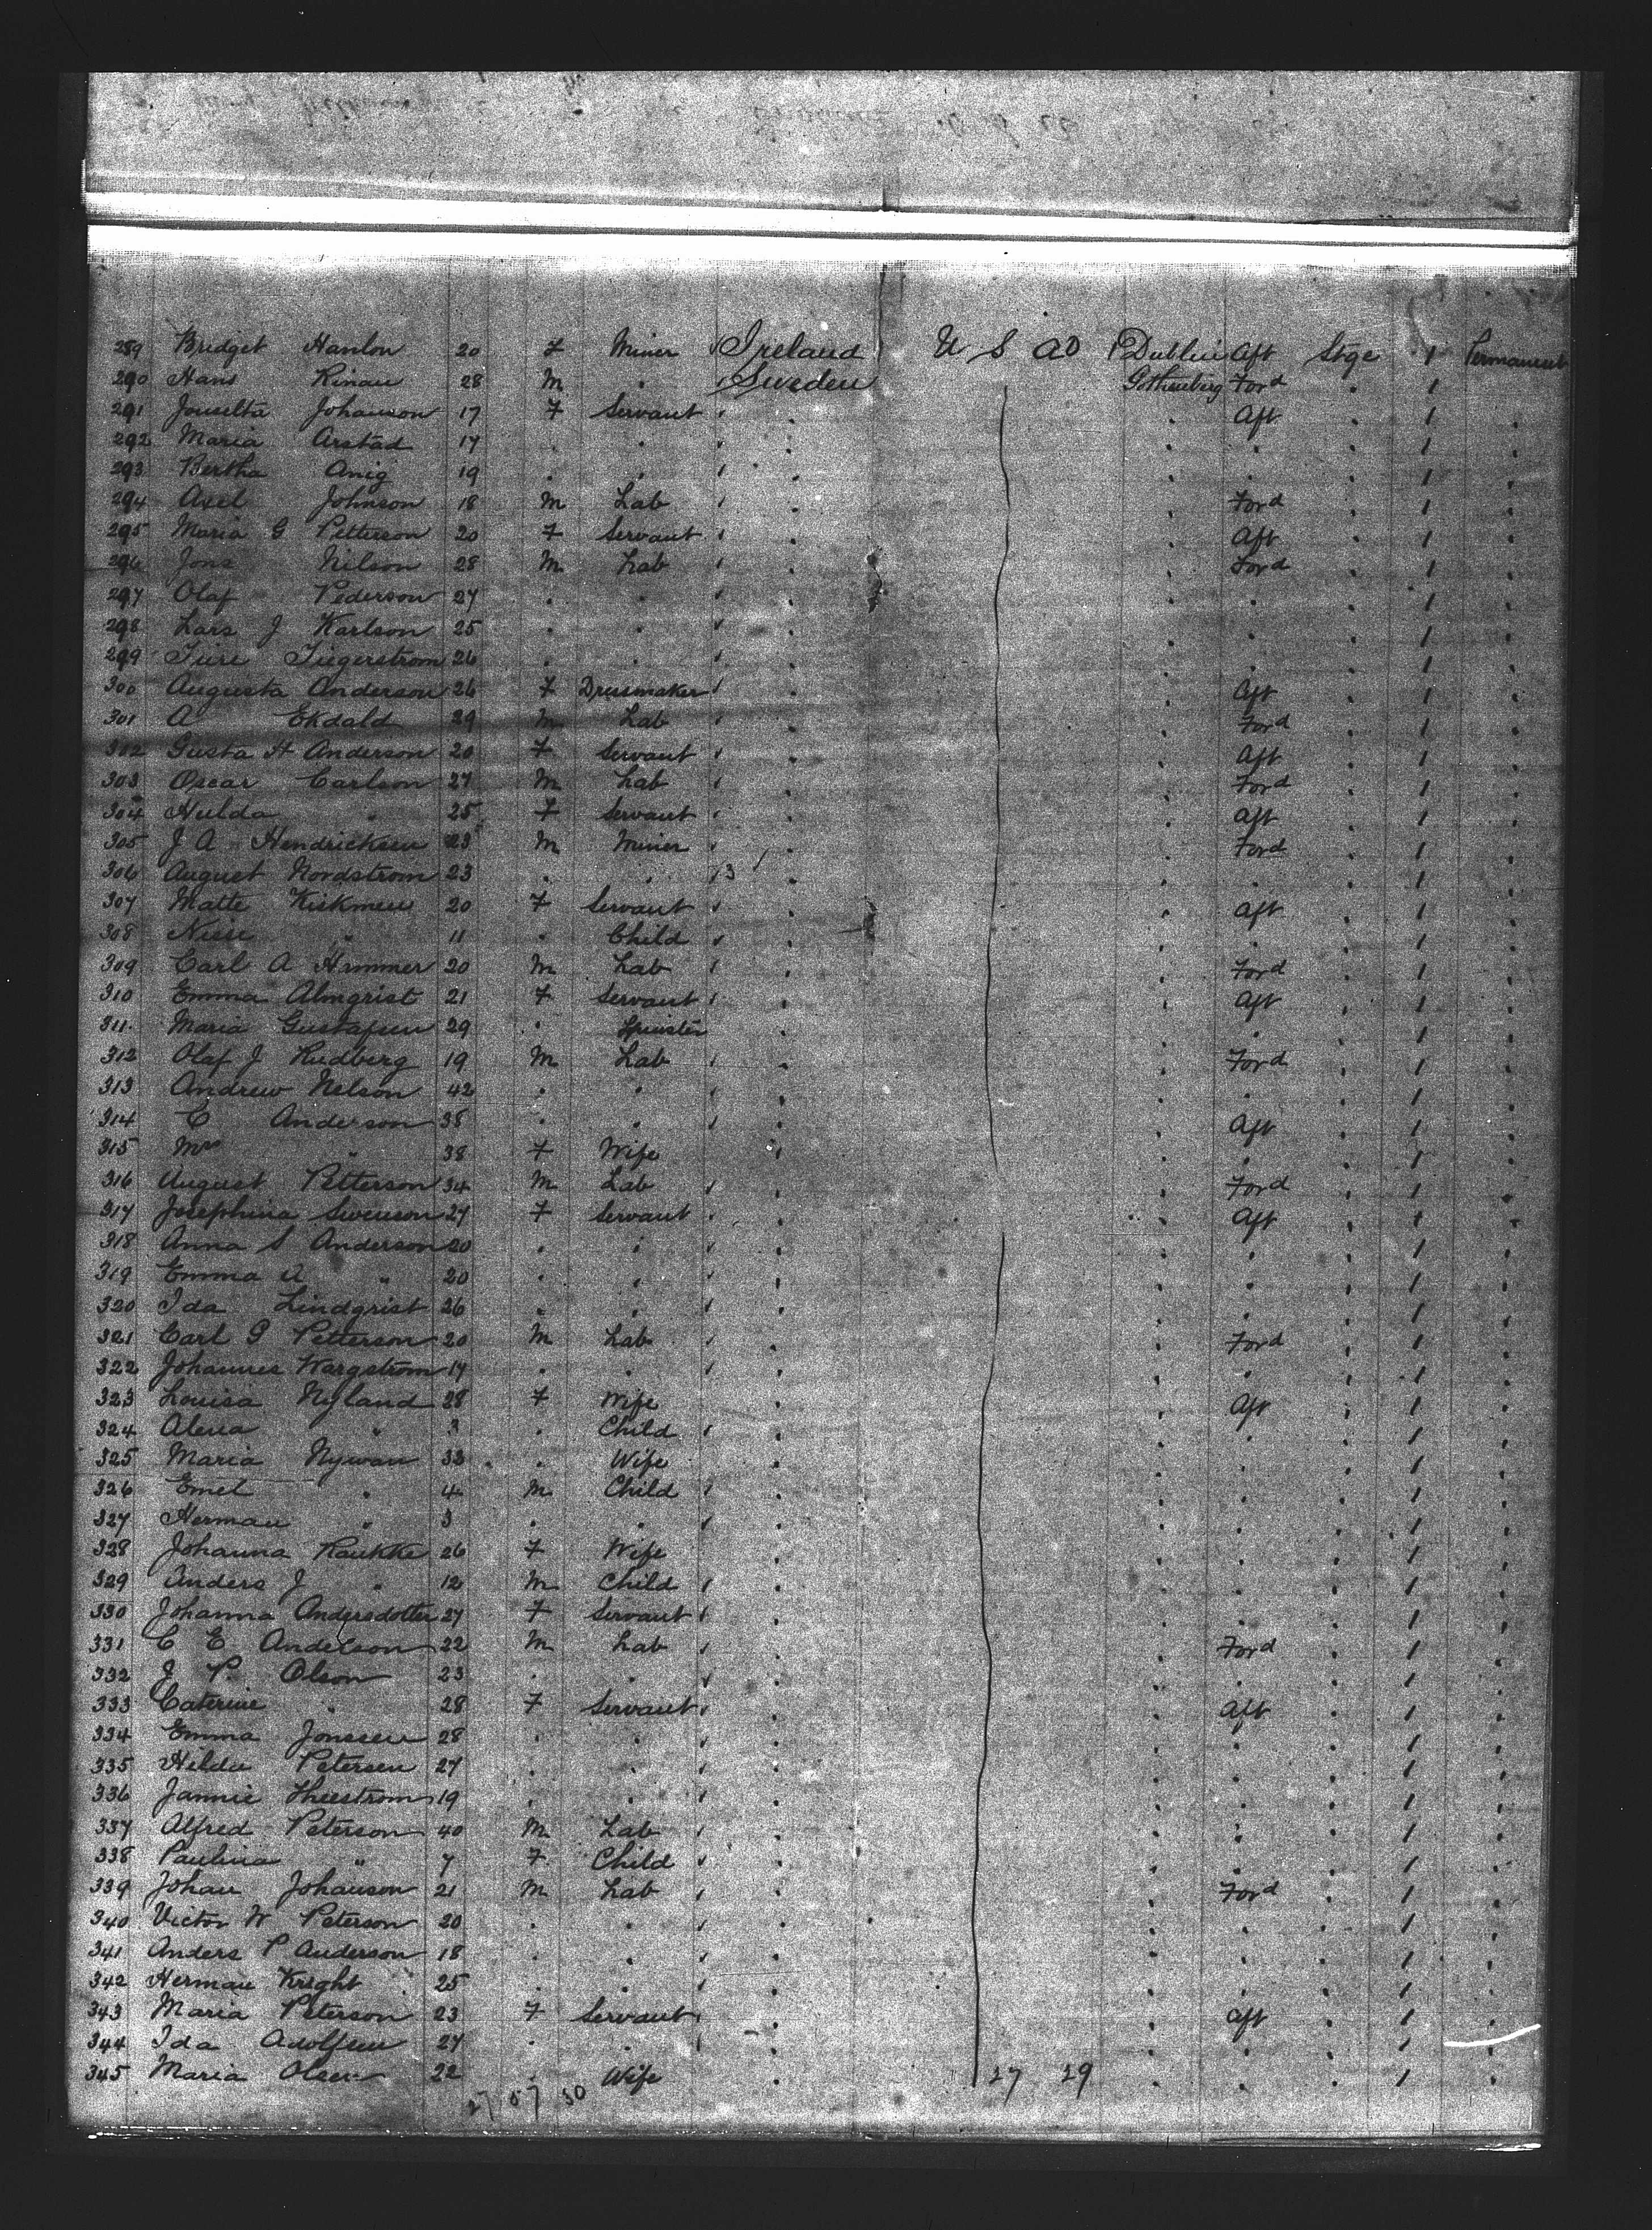 289 Bridget Hanlon 20 F Miner Ireland U S A Dublin Aft Stge 1 Permanent
290 Hans Kinau 28 M " Sweden Gothenburg Ford " 1
291 Johanson 17 F Servant " " Aft " 1 "
292 Maria Arstad 17 " " " " " " 1 "
293 Bertha Anig 19 " " " " " " 1 "
294 Axel Johnson 18 M Lab " " Ford " 1 "
295 Maria G Petterson 20 F Servant " " Aft " 1 "
296 Jons Nilson 28 M Lab " " Ford " 1 "
297 Olaf Pederson 27 " " " " " " 1 "
298 Lars J Karlson 25 " " " " " " 1 "
299 Ture Tiegerstrom 26 " " " " " " 1 "
300 Augusta Anderson 26 F Dressmaker " " Aft " 1 "
301 A Ekdald 29 M Lab " " Ford " 1 "
302 Gusta H Anderson 20 F Servant " " Aft " 1 "
303 Oscar Carlson 27 M Lab " " Ford " 1 "
304 Hulda " 25 F Servant " " Aft " 1 "
305 J A Hendricksen 23 M Miner " " Ford " 1 "
306 August Nordstrom 23 " " 3 " " " " 1 "
307 Matte Kiskmen 20 F Servant " " Aft " 1 "
308 " 11 " Child " " " " 1 "
309 Carl A Hummer 20 M Lab " " Ford " 1 "
310 Emma Almgrist 21 F Servant " " Aft " 1 "
311 Maria Gustafsen 29 " Spinster " " " " 1 "
312 Olaf J Rudberg 19 M Lab " " Ford " 1 "
313 Andrew Nelson 42 " " " " " " 1 "
314 C Anderson 38 " " " " Aft " 1 "
315 Mrs " 38 F Wife " " " " 1 "
316 August Petterson 34 M Lab " " Ford " 1 "
317 Josephina Swenson 27 F Servant " " Aft " 1 "
318 Anna S Anderson 20 " " " " " " 1 "
319 Emma A " 20 " " " " " " 1 "
320 Ida Lindgrist 26 " " " " " " 1 "
321 Carl G Petterson 20 M Lab " " Ford " 1 "
322 Johannes Wargstrom 17 " " " " " " 1 "
323 Louisa Nyland 28 F Wife " " Aft " 1 "
324 " 3 " Child " " " " 1 "
325 Maria Nyman 33 " Wife " " " " 1 "
326 Emel " 4 M Child " " " " 1 "
327 Herman " 3 " " " " " " 1 "
328 Johanna Raukke 26 F Wife " " " " 1 "
329 Anders J " 12 M Child " " " " 1 "
330 Johanna Andersdotter 27 F Servant " " " " 1 "
331 C E Anderson 22 M Lab " " Ford " 1 "
332 J P Olson 23 " " " " " " 1 "
333 Caterine " 28 F Servant " " Aft " 1 "
334 Emma Jonssen 28 " " " " " " 1 "
335 Hilda Petersen 27 " " " " " " 1 "
336 Jannie 19 " " " " " " 1 "
337 Alfred Peterson 40 M Lab " " " " 1 "
338 Paulina " 7 F Child " " " " 1 "
339 Johan Johanson 21 M Lab " " Ford " 1 "
340 Victor W Peterson 20 " " " " " " 1 "
341 Anders P Anderson 18 " " " " " " 1 "
342 Herman Kright 25 " " " " " " 1 "
343 Maria Peterson 23 F Servant " " Aft " 1 "
344 Ida Adolfsen 27 " " " " " " 1 "
345 Maria Olsen 22 " Wife " 27 29 " " " 1 "
27 57 30